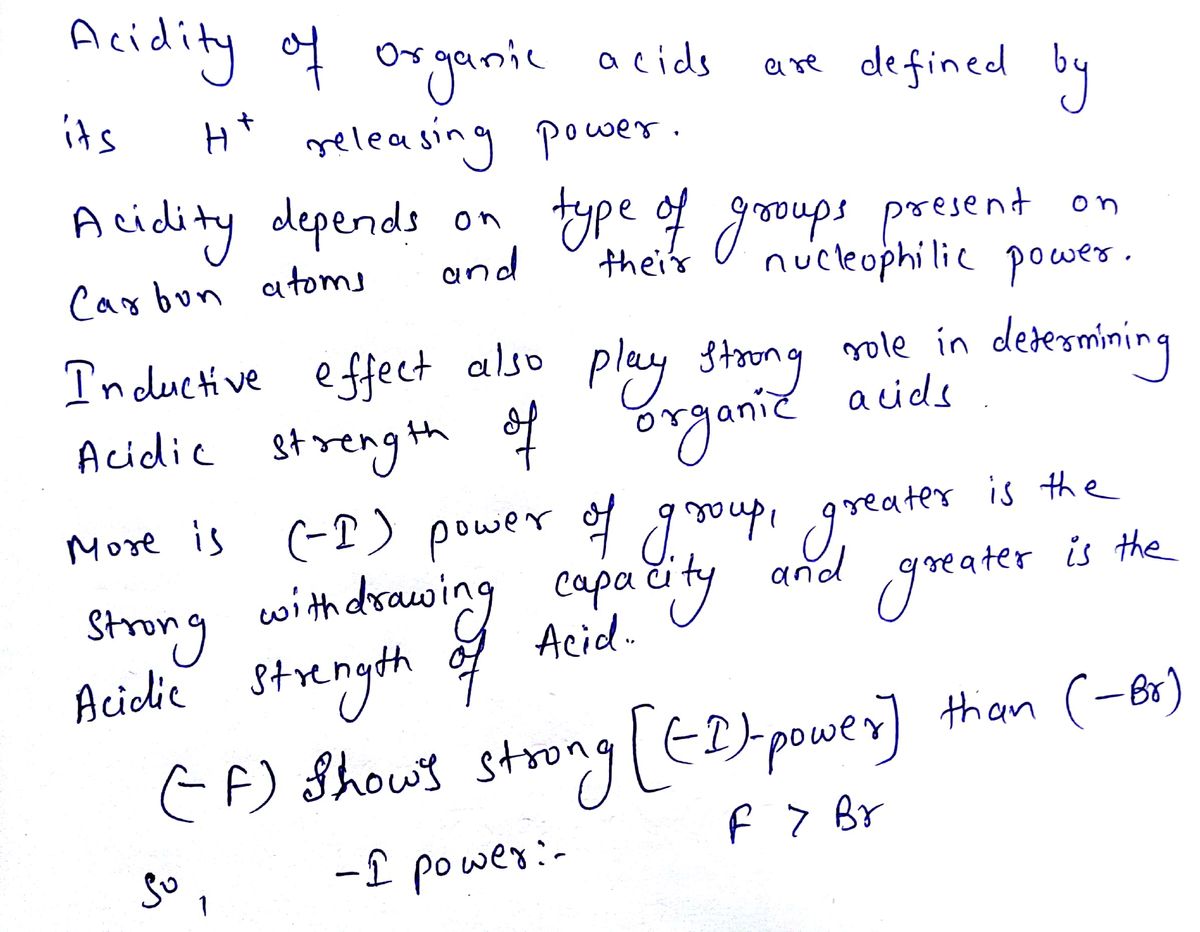 Acidity of organic acids are defined by
its H⁺ releasing power.
Acidity depends on type of groups present on
Carbon atoms and their nucleophilic power.
Inductive effect also play strong role in determining
Acidic strength of organic acids.
More is (-I) power of group, greater is the
strong withdrawing capacity and greater is the
Acidic strength of Acid..
(-F) Shows strong [(-I)-power] than (-Br)
F > Br
So, -I power:-